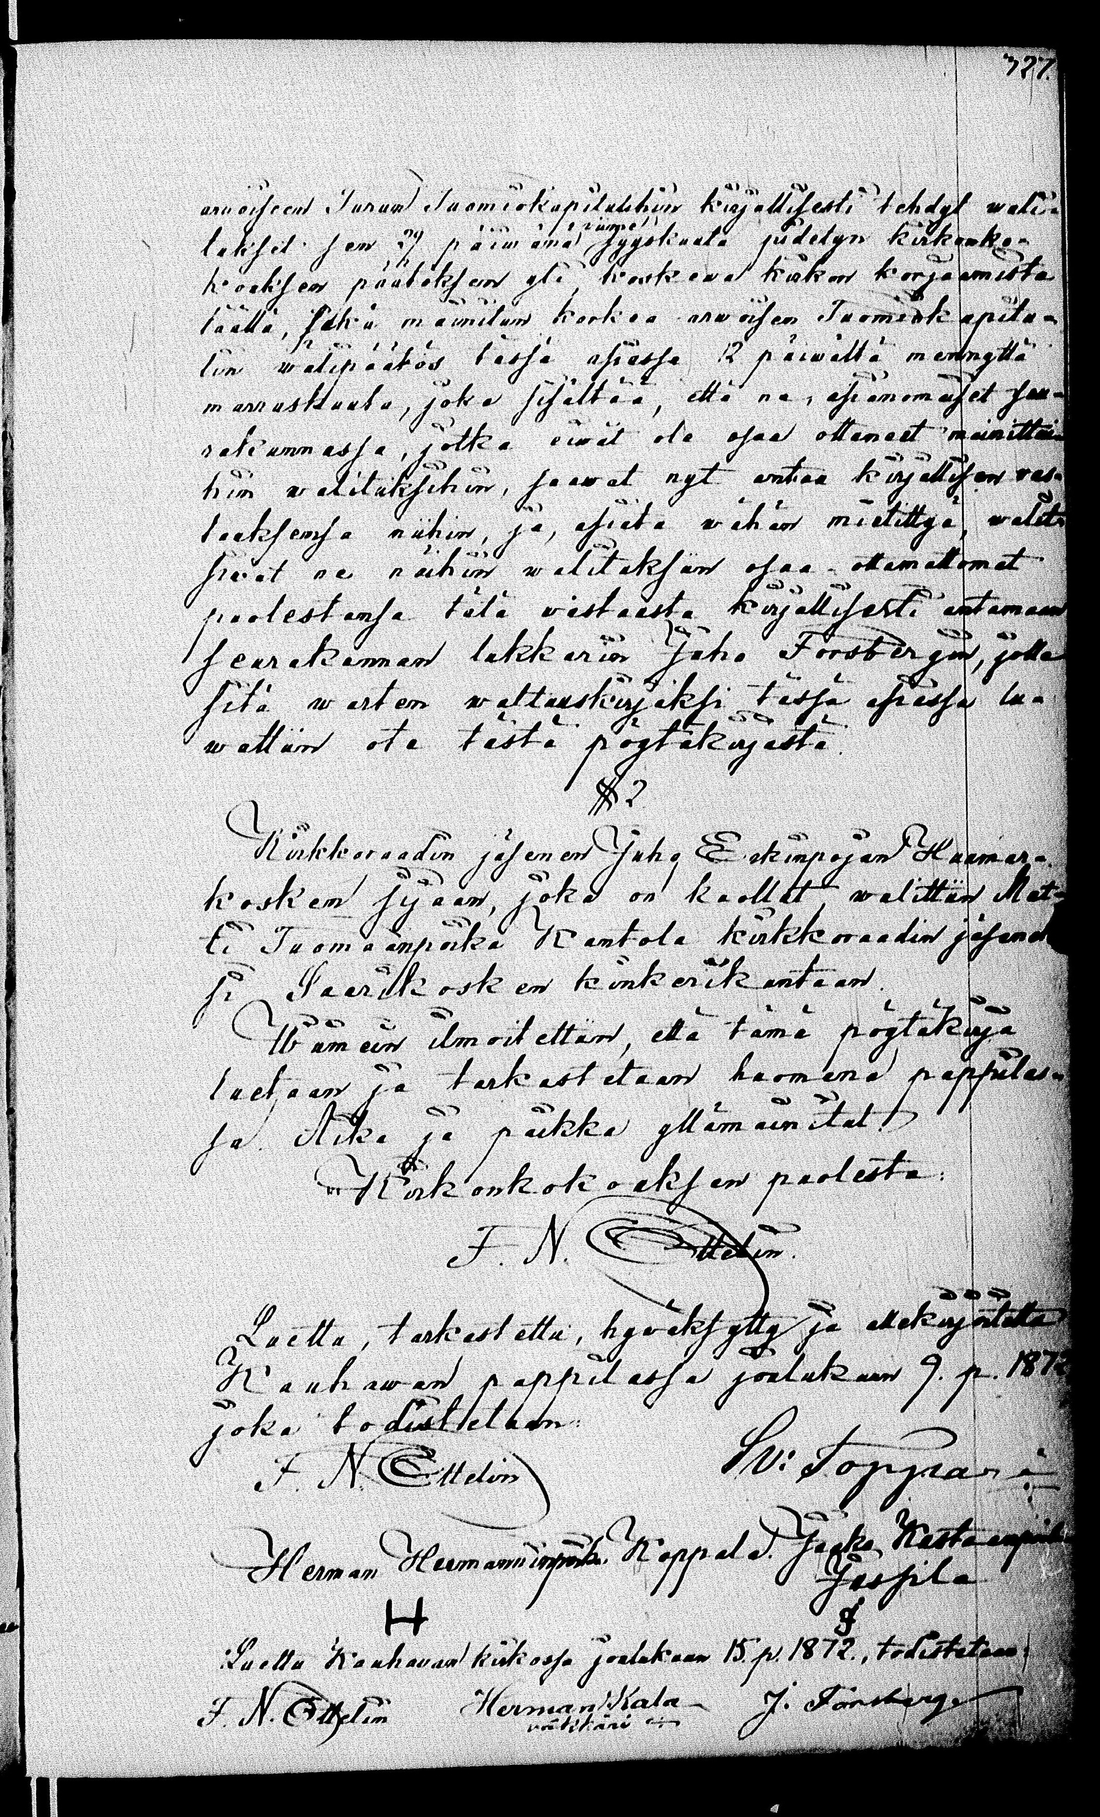 327.
arwoiseen Turun Tuomiokapituliihin kirjallisesti tehdyt wali-
tukset sen 29 päiwänä wiime syyskuuta pidetyn kirkonko-
kouksen päätöksen yli, koskewa kirkon korjaamista
täällä, sekä mainitun korkea-arwoisen Tuomiokapitu-
lin wälipäätös tässä asiassa 12 päiwältä mennyttä
marraskuuta, joka sisältää, että ne, asianomaiset seu-
rakunnassa, jotka eiwät ole osaa ottaneet mainittui-
hin walituksihin, saawat nyt antaa kirjallisen was-
tauksensa niihin, ja, asiata wähän mietittyä, walit-
siwat ne näihin walituksiin osaa-ottamattomat
puolestansa tätä wastausta kirjallisesti antamaan
seurakunnan lukkarin Juho Forsbergin, jolle
sitä warten waltauskirjaksi tässä asiassa lu-
wattiin ote tästä pöytäkirjasta.
§ 2
Kirkkoraadin jäsenen Juho Erkinpojan Haamara-
kosken sijaan, joka on kuollut, walittiin Mat-
ti Tuomaanpoika Kantola kirkkoraadin jäsenek-
si Saarikosken kinkerikuntaan.
Wiimein ilmoitettiin, että tämä pöytäkirja
luetaan ja tarkastetaan huomena pappilas-
sa. Aika ja paikka yllämainitut.
Kirkonkokouksen puolesta:
F. N. Ottelin.
Luettu, tarkastettu, hywäksytty ja allekirjoitettu
Kauhawan pappilassa joulukuun 9. p. 1872
joka todistetaan:
F. N. Ottelin
Herman Hermanninpoika Koppala. Jaako Kustaanpoika
H
Luettu Kauhawan kirkossa joulukuun 15. p. 1872., todistetaan:
F. N. Ottelin Herman Kala J. Forsberg